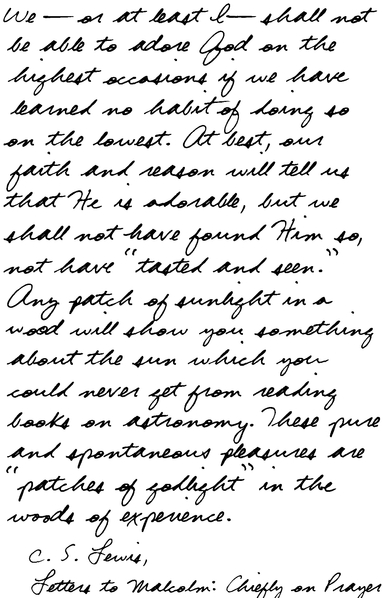 We — or at least I — shall not
be able to adore God on the
highest occasions if we have
learned no habit of doing so
on the lowest. At best, our
faith and reason will tell us
that He is adorable, but we
shall not have found Him so,
not have "tasted and seen."
Any patch of sunlight in a
wood will show you something
about the sun which you
could never get from reading
books on astronomy. These pure
and spontaneous pleasures are
"patches of godlight" in the
woods of experience.
C. S. Lewis,
Letters to Malcolm: Chiefly on Prayer